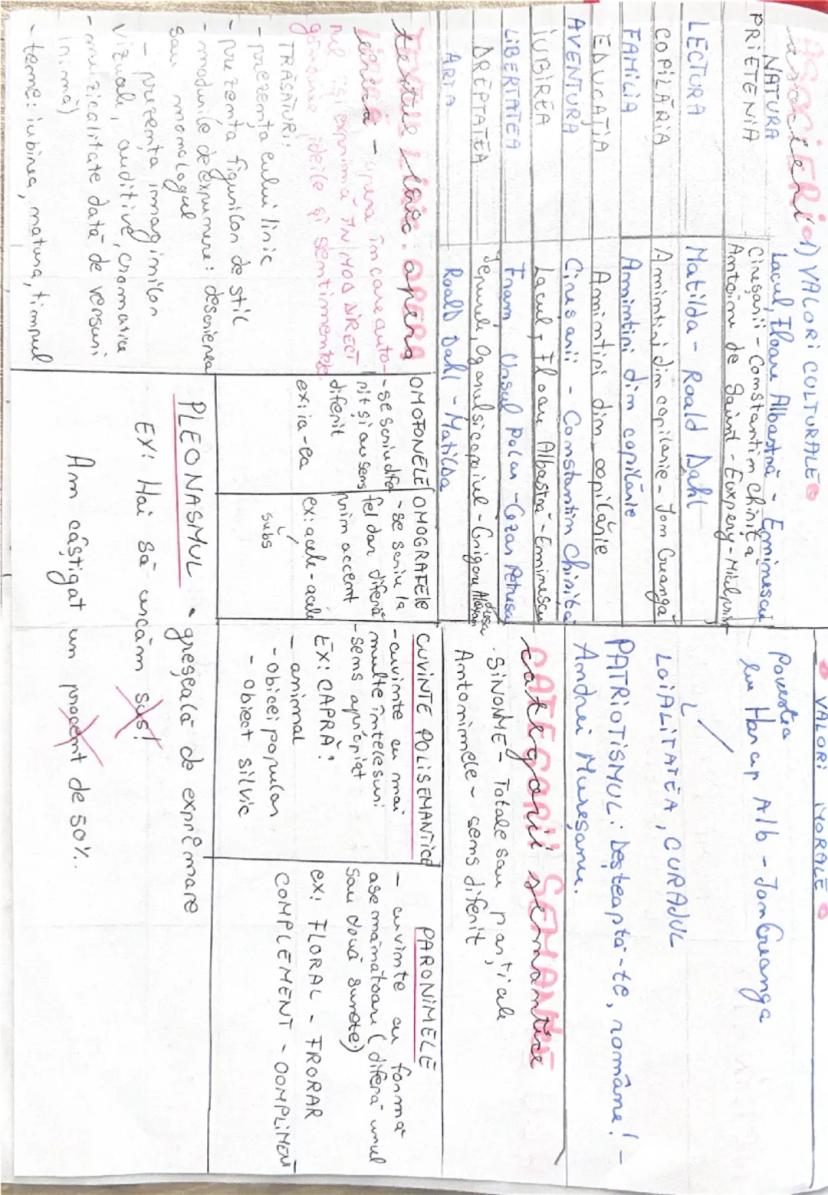 ASOCIERI
asocieri
1) VALORI CULTURALE
NATURA Lacul, Floare Albastră - Eminescu
PRIETENIA Cireșarii - Constantin Chiriță
Antoine de Saint-Exupery -
LECTURA Matilda - Roald Dahl
COPILĂRIA Amintiri din copilărie - Ion Creangă
FAMILIA Amintiri din copilărie
EDUCAȚIA Amintiri din copilărie
AVENTURA Cireșarii - Constantin Chiriță
IUBIREA Lacul, Floare Albastră - Eminescu
LIBERTATEA Fram, Ursul Polar - Cezar Petrescu
DREPTATEA Iepurele, Ogarul și copoiul - Grigore Alexandrescu
ARTA Roald Dahl - Matilda
VALORI MORALE
Povestea
lui Harap Alb - Ion Creangă
LOIALITATEA, CURAJUL
PATRIOTISMUL: Deșteaptă-te, române! -
Andrei Mureșanu.
CATEGORII SEMANTICE
categorii semantice
SINONIME - Totale sau parțiale
Antonimele - sens diferit
OPERA
textul liric. opera
lirică - opera în care auto-
rul își exprimă ÎN MOD DIRECT
gândurile, ideile și sentimentele
TRĂSĂTURI:
- prezența eului liric
- prezența figurilor de stil
- modurile de expunere: descrierea
sau monologul
- prezența imaginilor
vizuale, auditive, cromatice
- muzicalitate dată de versuri
(rimă)
- teme: iubirea, natura, timpul
OMOFONELE
- se scriu dife-
rit și au sens
diferit
ex: ia - ea
OMOGRAFELE
- se scriu la
fel dar diferă
prin accent
ex: acele - acele
subs
CUVINTE POLISEMANTICE
- cuvinte cu mai
multe înțelesuri
- sens apropiat
EX: CAPRĂ:
- animal
- obicei popular
- obiect silvic
PARONIMELE
- cuvinte cu formă
asemănătoare (diferă unul
sau două sunete)
ex: FLORAL - FRORAR
COMPLEMENT - COMPLIMENT
PLEONASMUL - greșeală de exprimare
EX: Hai să urcăm sus!
Am câștigat un procent de 50%.